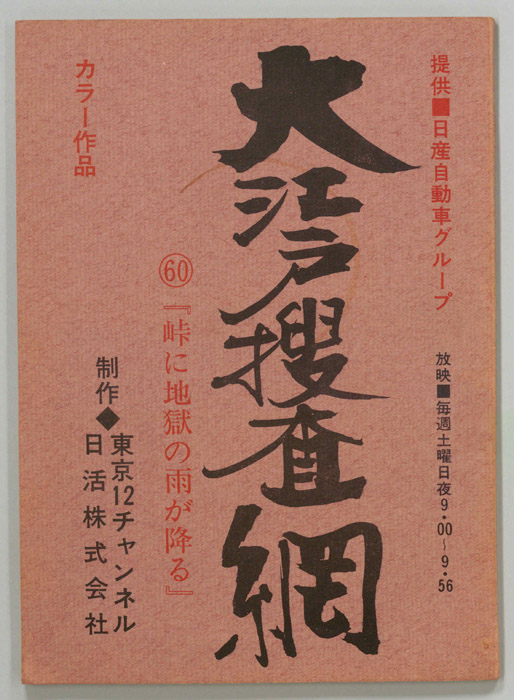 提供■日産自動車グループ
放映■毎週土曜日夜9・00〜9・56
大江戸捜査網
㊿
『峠に地獄の雨が降る』
カラー作品
制作◆東京12チャンネル
日活株式会社